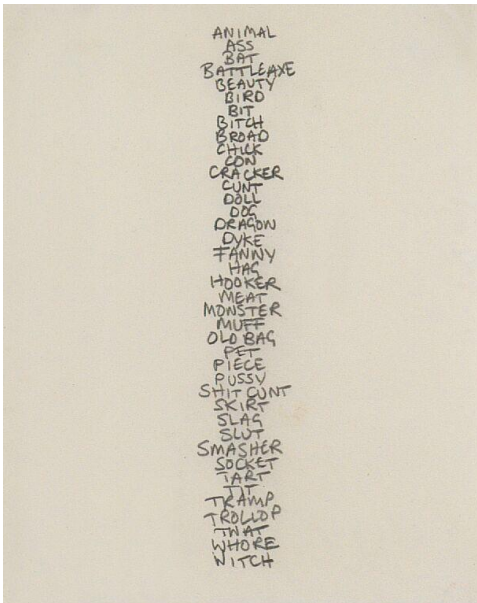 ANIMAL
ASS
BAT
BATTLEAXE
BEAUTY
BIRD
BIT
BITCH
BROAD
CHICK
CON
CRACKER
CUNT
DOLL
DOG
DRAGON
DYKE
FANNY
HAG
HOOKER
MEAT
MONSTER
MUFF
OLD BAG
PET
PIECE
PUSSY
SHIT CUNT
SKIRT
SLAG
SLUT
SMASHER
SOCKET
TART
TIT
TRAMP
TROLLOP
TWAT
WHORE
WITCH